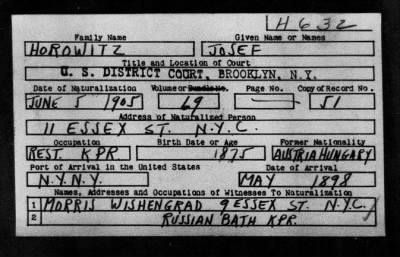 H632
Family Name Given Name or Names
HOROWITZ JOSEF
Title and Location of Court
U. S. DISTRICT COURT, BROOKLYN, N.Y.
Date of Naturalization Volume or Bundle No. Page No. Copy of Record No.
JUNE 5 1905 69 — 51
Address of Naturalized Person
11 ESSEX ST. N.Y.C.
Occupation Birth Date or Age Former Nationality
REST. KPR 1875 AUSTRIA HUNGARY
Port of Arrival in the United States Date of Arrival
N.Y.N.Y. MAY 1898
Names, Addresses and Occupations of Witnesses To Naturalization
1 MORRIS WISHENGRAD 9 ESSEX ST. N.Y.C.
2 RUSSIAN BATH KPR.